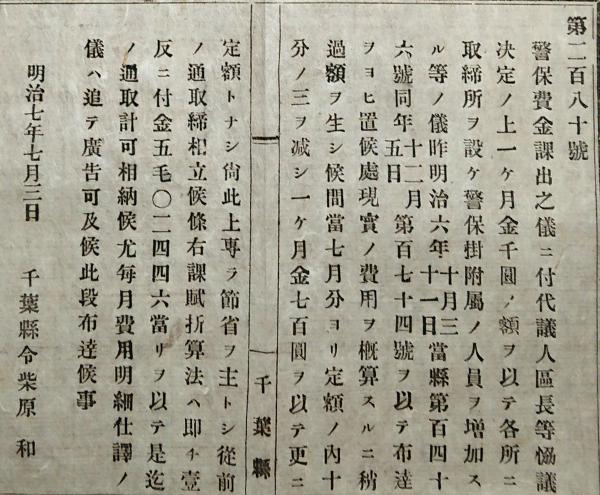 第二百八十號
警保費金課出之儀ニ付代議人區長等恊議
决定ノ上一ケ月金千圓ノ額ヲ以テ各所ニ
取締所ヲ設ケ警保掛附屬ノ人員ヲ增加ス
ル等ノ儀昨明治六年十月三十一日當縣第百四十
六號同年十二月五日第百七十四號ヲ以テ布達
ヲヨヒ置候處現實ノ費用ヲ概算スルニ稍
過額ヲ生シ候間當七月分ヨリ定額ノ內十
分ノ三ヲ减シ一ケ月金七百圓ヲ以テ更ニ
千葉縣
定額トナシ尙此上專ラ節省ヲ主トシ從前
ノ通取締相立候條右課賦折算法ハ即チ壹
反ニ付金五毛〇二四四六當リヲ以テ是迄
ノ通取計可相納候尤每月費用明細仕譯ノ
儀ハ追テ廣告可及候此段布達候事
明治七年七月三日
千葉縣令柴原和